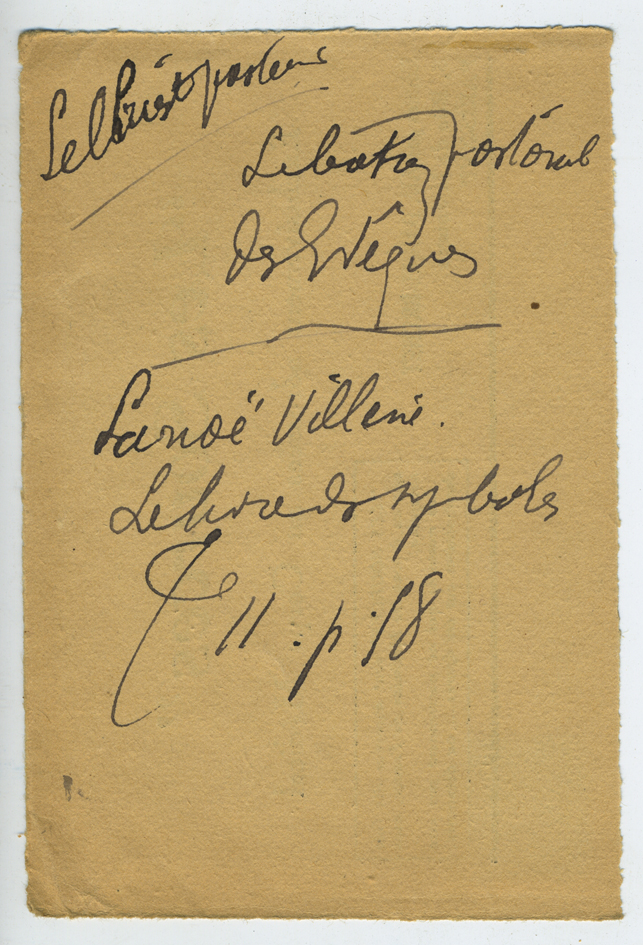 Le Christ pasteur
Le bâton pastoral
des Evêques
Lanoë Villène.
Le livre des symboles
T 11 . p. 58